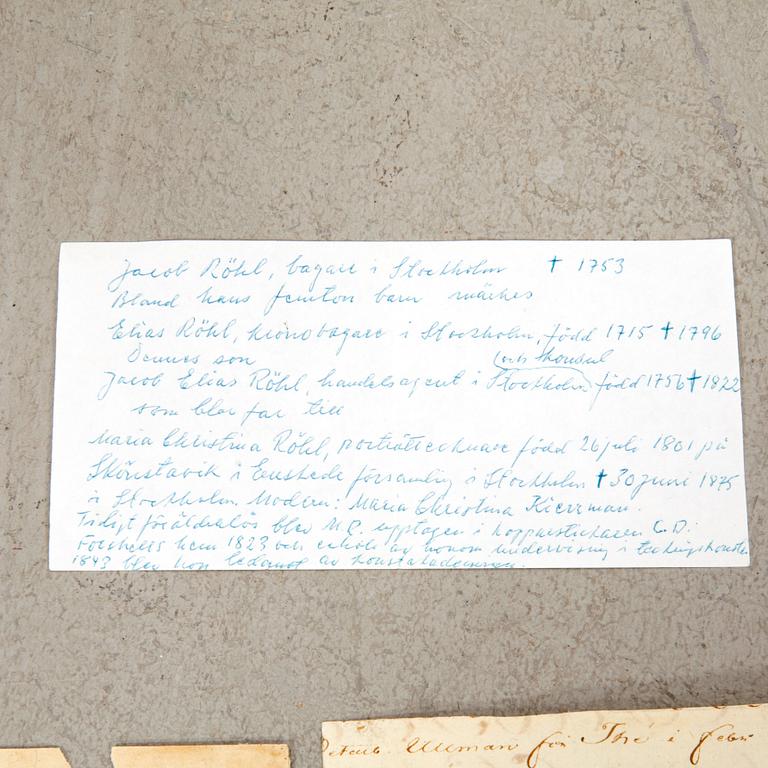 Jacob Röhl, bagare i Stockholm † 1753
Bland hans femton barn märkes
Elias Röhl, kronobagare i Stockholm, född 1715 † 1796
Dennes son (och konsul
Jacob Elias Röhl, handelsagent i Stockholm född 1756 † 1822
som blev far till
Maria Christina Röhl, porträttecknare född 26 juli 1801 på
Skönstavik i Enskede församling i Stockholm † 30 juni 1875
i Stockholm. Modern: Maria Christina Kierrman.
Tidigt föräldralös blev M.C. upptagen i kopparstickaren C.D.
Forshells hem 1823 och erhöll av honom undervisning i teckningskonsten
1843 blev hon ledamot av konstakademien.
Ullman för Thé i febr